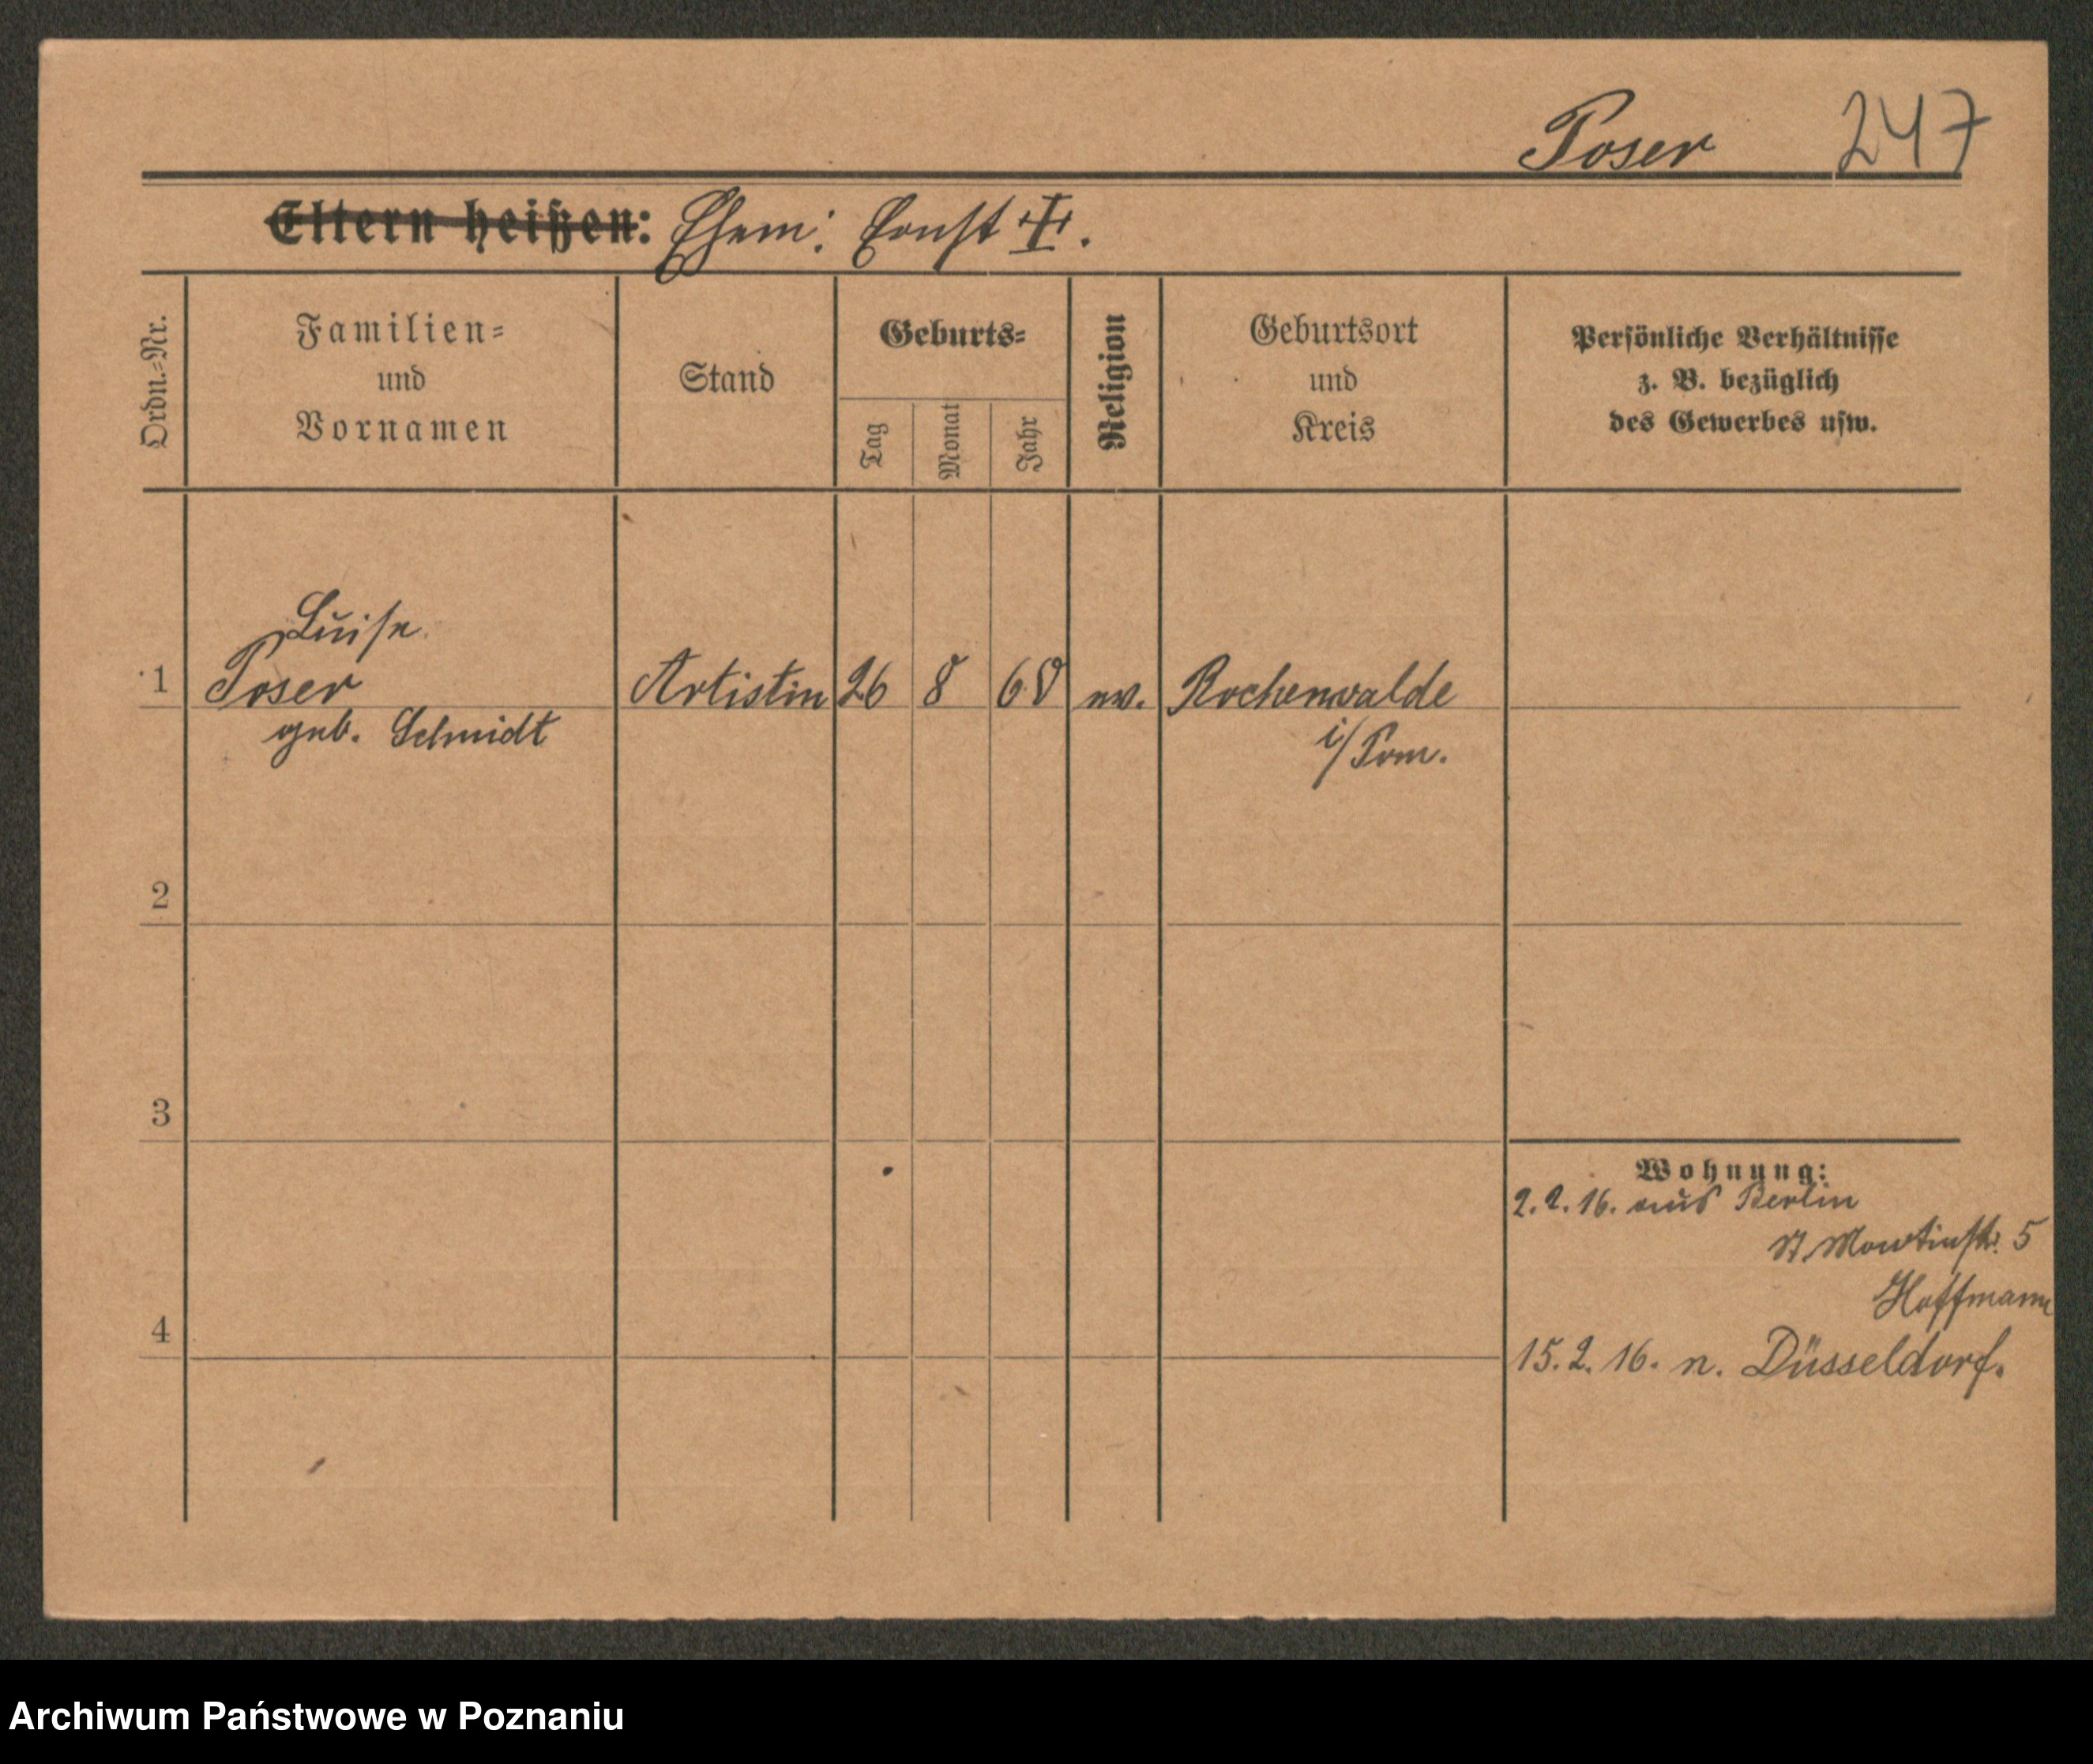 Poser 247
Eltern heißen: Ehem: Ernst ☦.
Ordn.=Nr.
Familien=
und
Vornamen
Stand
Geburts=
Tag
Monat
Jahr
Religion
Geburtsort
und
Kreis
Persönliche Verhältnisse
z. B. bezüglich
des Gewerbes usw.
Luise
1 Poser Artistin 26 8 68 ev. Rochenwalde
geb. Schmidt i/Pom.
2
3
Wohnung:
2.2.16. aus Berlin
St Martinstr. 5
Hoffmann
4
15.2.16. n. Düsseldorf.
Archiwum Państwowe w Poznaniu